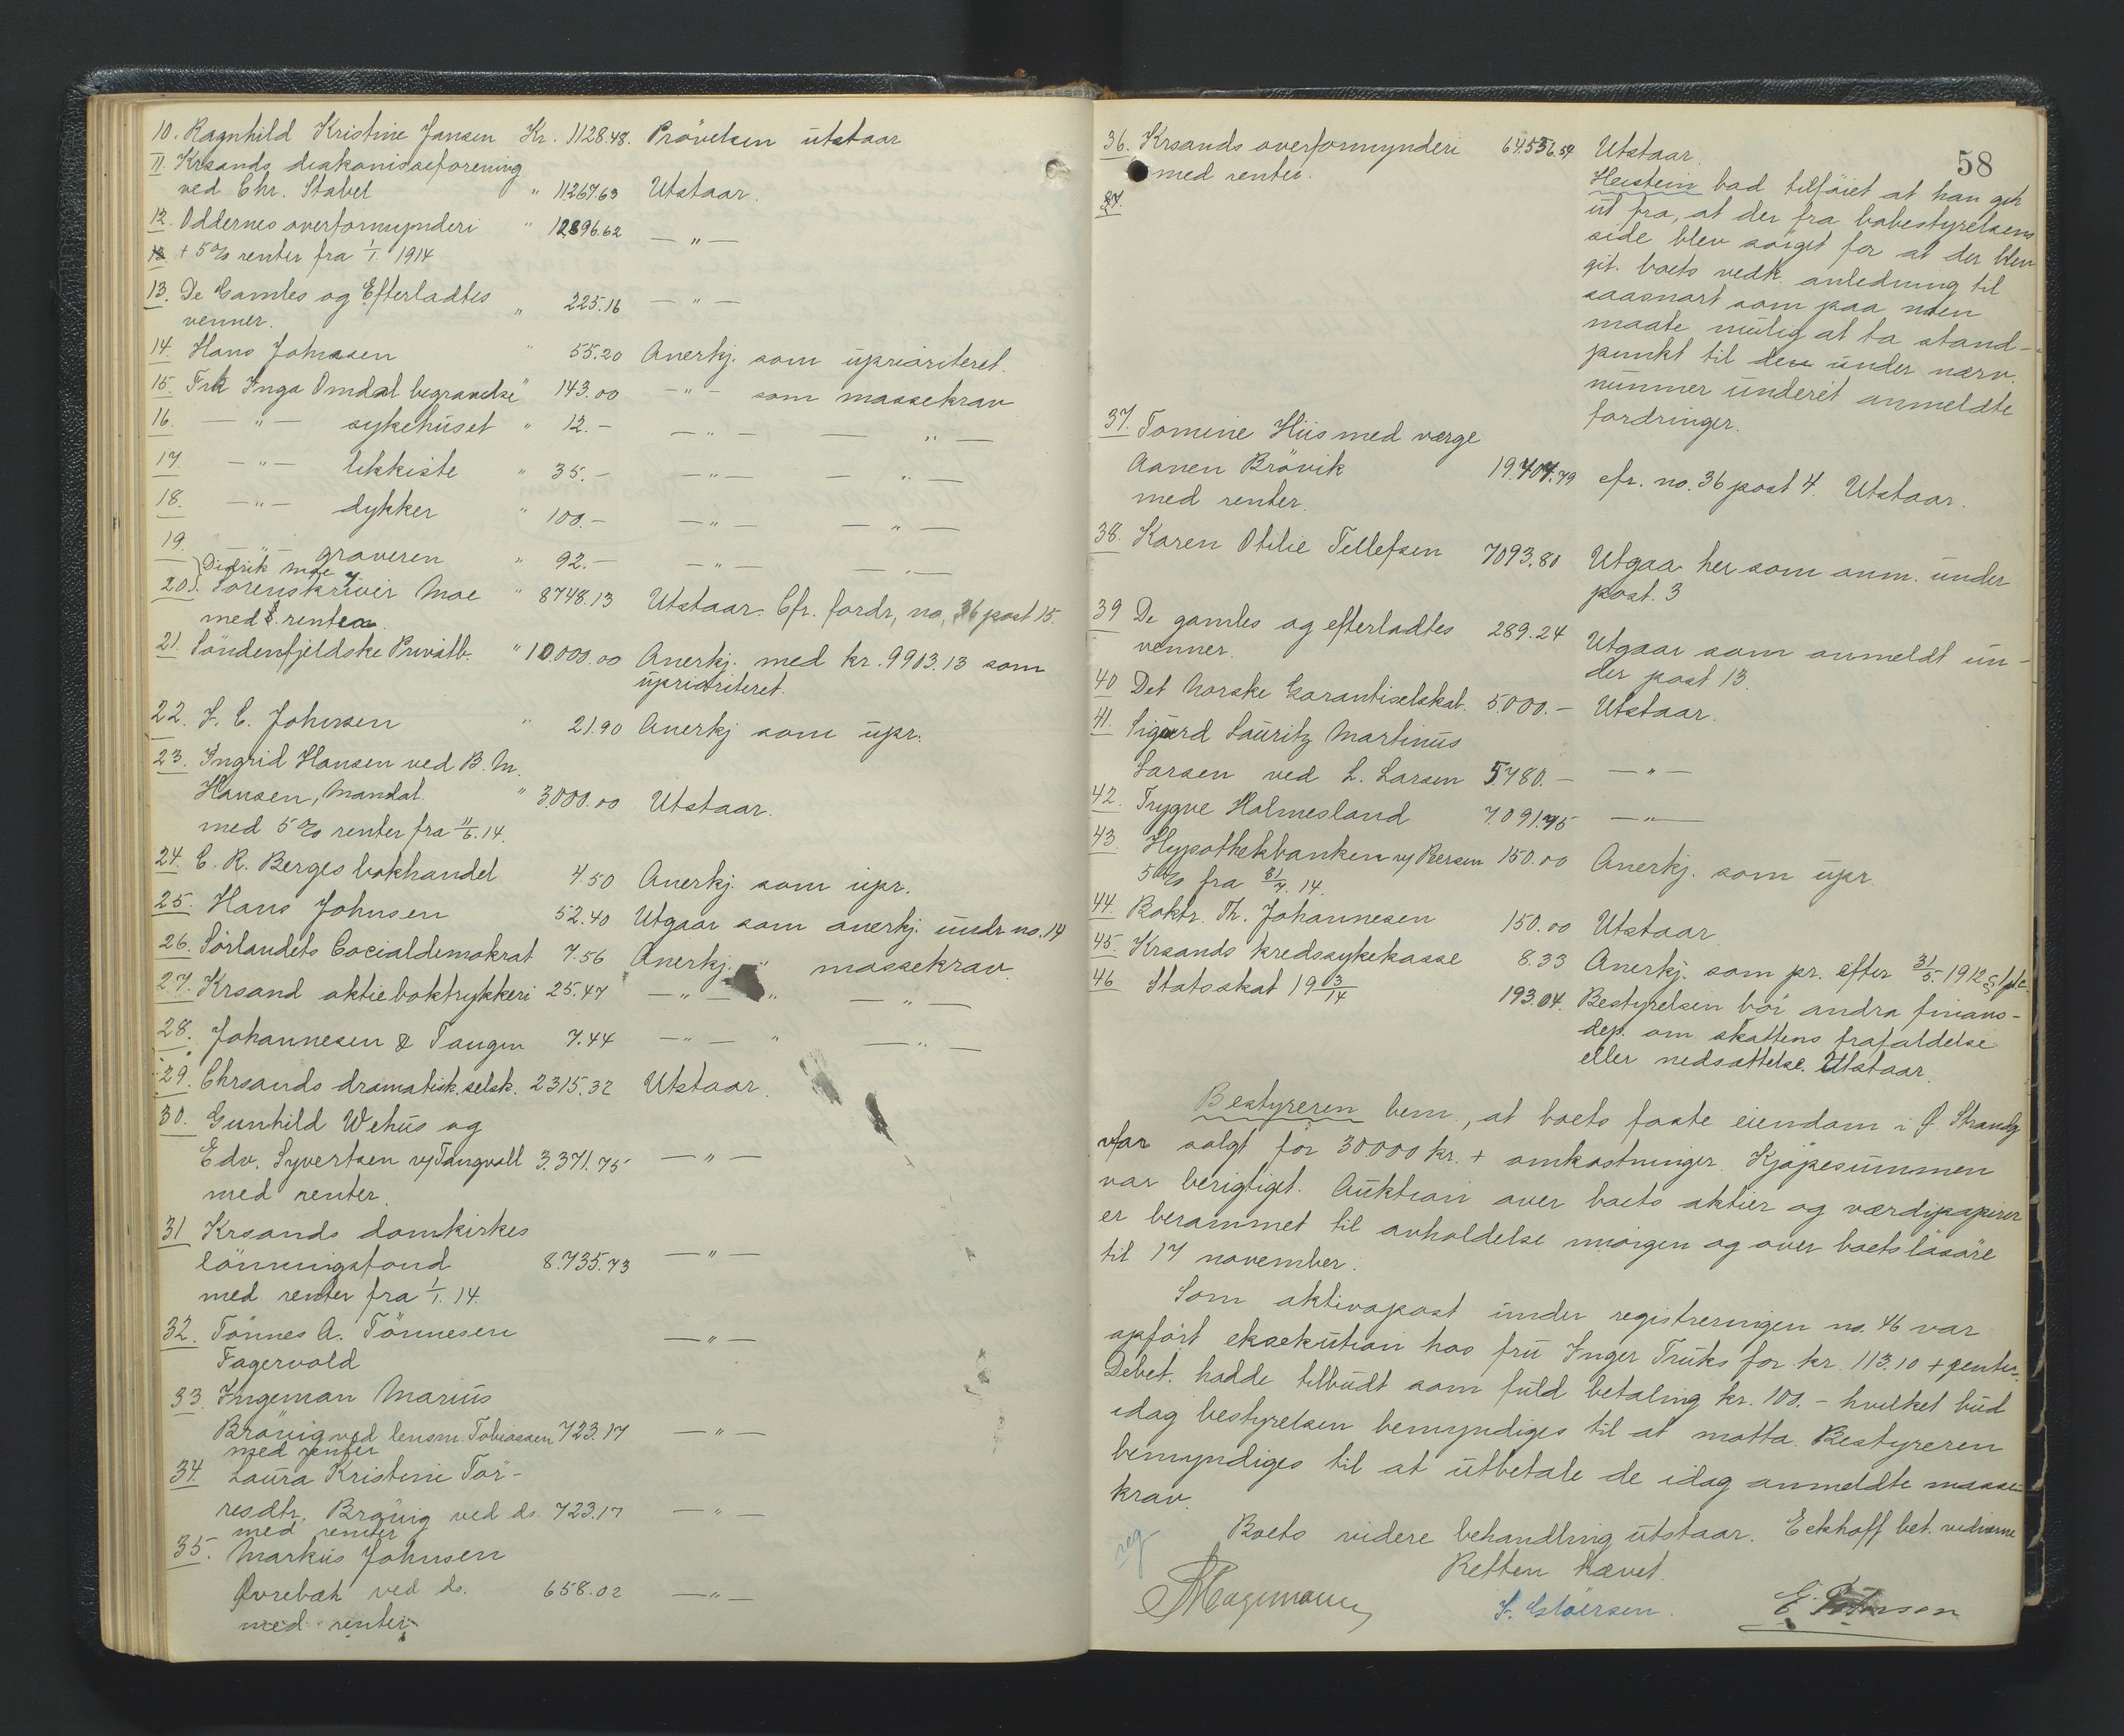 10. Ragnhild Kristine Jansen Kr. 1128.48. Prövelsen utstaar
11. Krsands diakonisseforening
ved Chr. Stabel " 11267.63 Utstaar.
12. Oddernes overformynderi " 12896.62 — " —
+ 5% renter fra 1/1. 1914
13. De Gamles og Efterladtes " 225.16 — " —
venner.
14. Hans Johnsen " 55.20 Anerkj. som uprioriteret.
15. Frk Inga Omdal begravelse " 143.00 — " — som massekrav
16. — " — sykehuset " 12.- — " — — " —
17. — " — likkiste " 35.- — " — — " —
18. — " — dykker " 100.- — " — — " —
19. — " — graveren " 92.- — " — — " —
Didrik Moe
20. Sörenskriver Moe " 8748.13 Utstaar. Cfr. fordr. no. 36 post 15.
med renter.
21. Söndenfjeldske Privatb. " 10000.00 Anerkj. med kr. 9903.13 som
uprioriteret.
22. F. C. Johnsen " 21.90 Anerkj som upr.
23. Ingrid Hansen ved B. M.
Hansen, Mandal. " 3000.00 Utstaar.
med 5% renter fra 11/6. 14.
24. C. R. Berges bokhandel 4.50 Anerkj. som upr.
25. Hans Johnsen 52.40 Utgaar som anerkj. undr no. 14
26. Sörlandets Cocialdemokrat 7.56 Anerkj. " massekrav.
27. Krsand aktieboktrykkeri 25.47 — " — " — " —
28. Johannesen & Tangen 7.44 — " — " — " —
29. Chrsands dramatisk. selsk. 2315.32 Utstaar.
30. Gunhild Wehus og
Edv. Syvertsen v/ Tangvall 3.371.75 — " —
med renter.
31 Krsands domkirkes
lönningsfond 8.735.73 — " —
med renter fra 1/1. 14.
32. Tönnes A. Tönnesen — " —
Fagervold
33. Ingeman Marius
Brövig ved lensm. Tobiassen 723.17 — " —
med renter
34. Laura Kristine Tor-
resdtr. Brövig ved ds. 723.17 — " —
med renter
35. Markus Johnsen
Øvrebøh ved ds. 658.02 — " —
med renter
58
36. Krsands overformynderi 64.536.54 Utstaar.
med renter.
37.
Heistein bad tilföiet at han gik
ut fra, at der fra bobestyrelsens
side blev sörget for at der blev
git. boets vedk. anledning til
saasnart som paa noen
maate mulig at ta stand-
punkt til den under nærv.
nummer underet anmeldte
fordringer.
37. Tomine Hiis med værge
Aanen Brövik 19.404.79 cfr. no. 36 post 4. Utstaar.
med renter.
38. Karen Otilie Tellefsen 7093.80 Utgaar her som anm. under
post. 3
39 De gamles og efterladtes 289.24 Utgaar som anmeldt un-
venner. der post 13.
40 Det Norske Garantiselskab. 5.000.- Utstaar.
41. Sigurd Lauritz Martinus
Larsen ved L. Larsen 5780.- — " —
42. Trygve Holmesland 7.091.75 — " —
43. Hypothekbanken v/ Reersen 150.00 Anerkj. som upr.
5% fra 31/7. 14.
44. Boktr. Th. Johannesen 150.00 Utstaar.
45. Krsands kredssykekasse 8.33 Anerkj. som pr. efter 31/5. 1912
46 Statsskat 1903/14 193.04. Bestyrelsen bör andra finans-
dep. om skattens frafaldelse
eller nedsættelse. Utstaar.
Bestyreren bem., at boets faste eiendom i Ø. Strandg
var solgt for 30000 kr. + omkostninger. Kjöpesummen
var berigtiget. Auktion over boets aktier og værdipapirer
er berammet til avholdelse imorgen og over boets lösöre
til 17 november.
Som aktivapost under registreringen no. 46 var
opført eksekution hos fru Inger Truks for kr. 113.10 + renter.
Debet. hadde tilbudt som fuld betaling kr. 100.- hvilket bud
idag bestyrelsen bemyndiges til at motta. Bestyreren
bemyndiges til at utbetale de idag anmeldte masse-
krav.
reg
Boets videre behandling utstaar. Eckhoff bet.
Retten hævet.